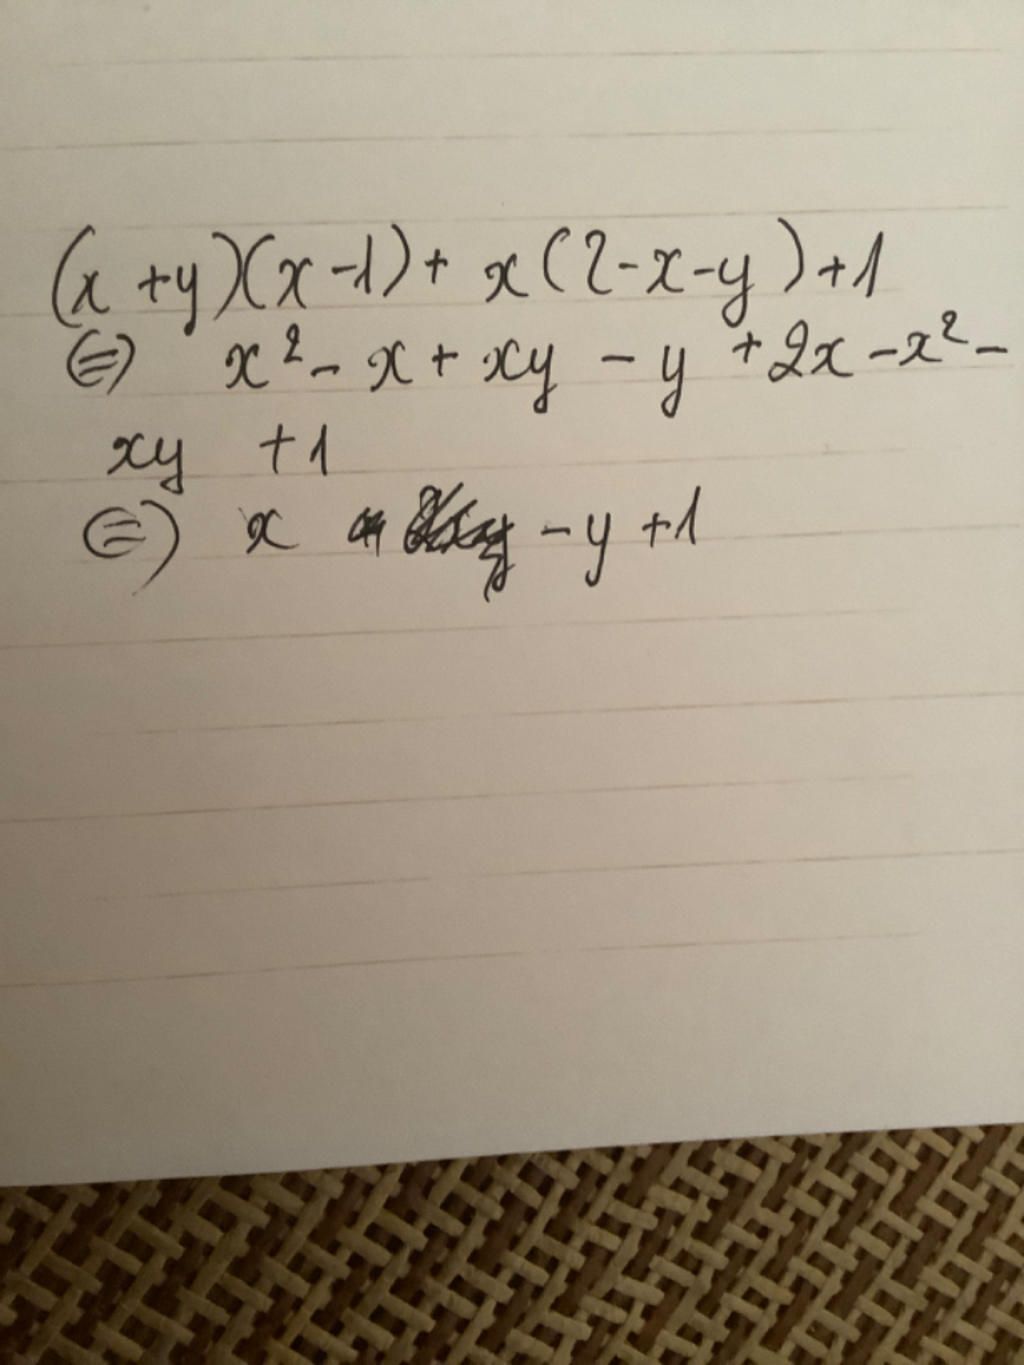 (x+y)(x-1)+x(2-x-y)+1
(=) x²-x+xy-y+2x-x²-
xy +1
(=) x -y+1